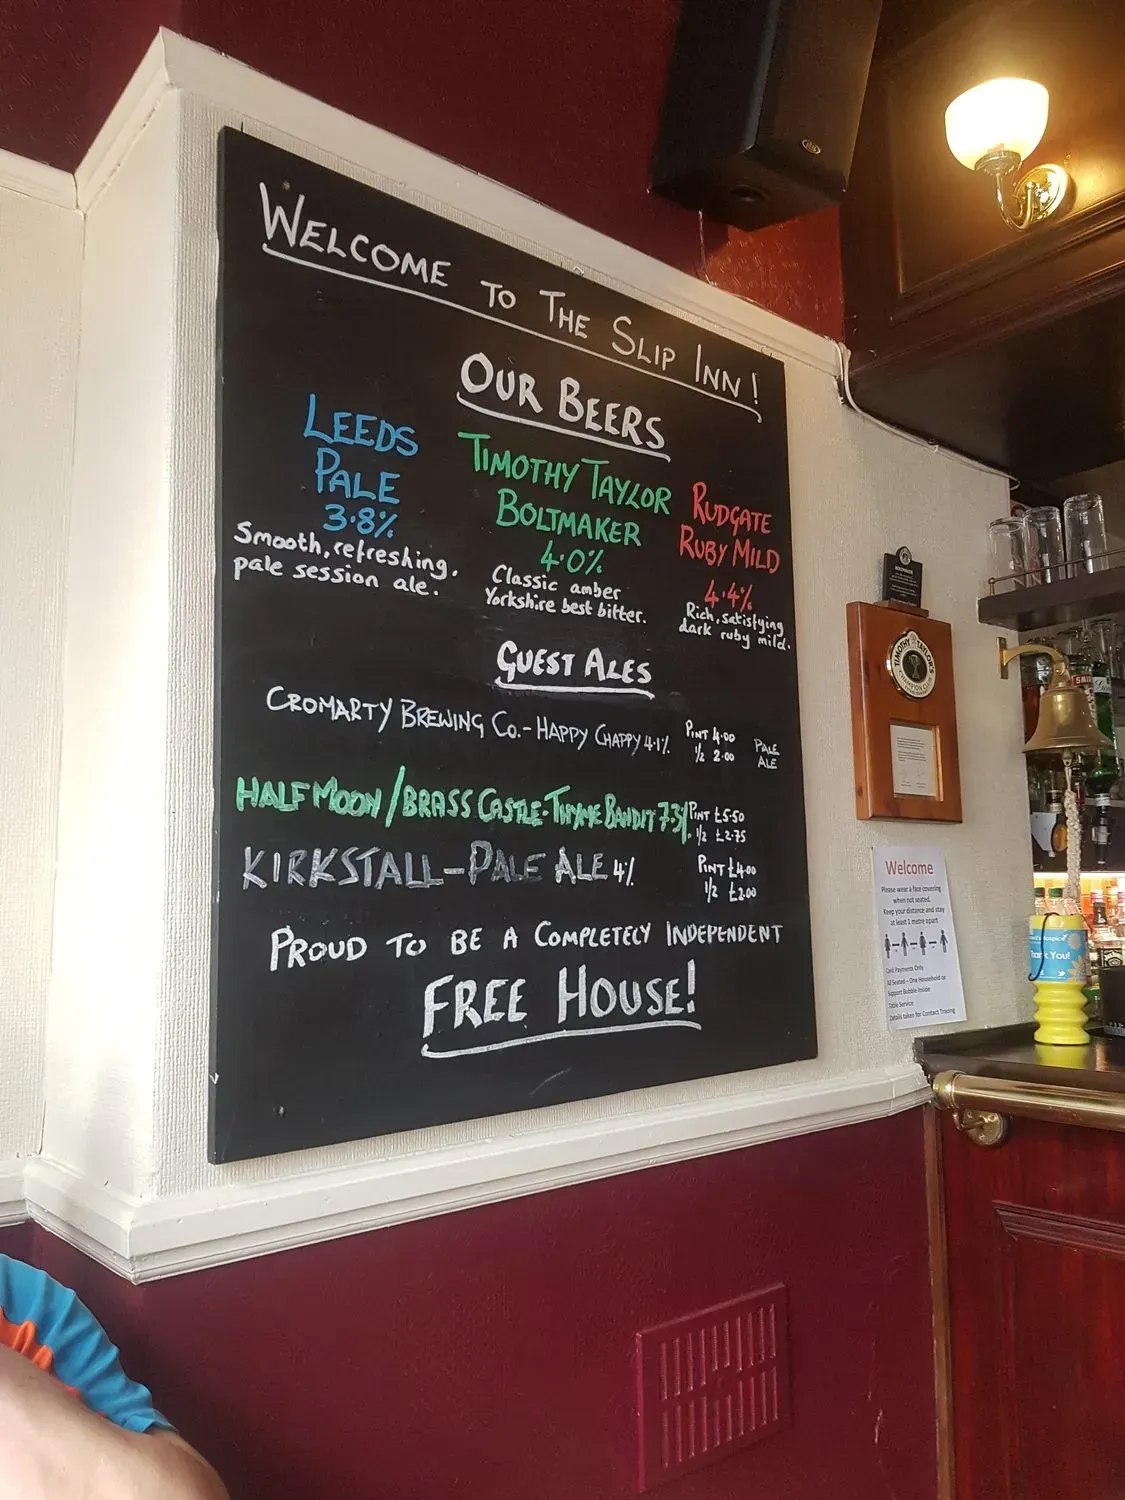 WELCOME TO THE SLIP INN!
OUR BEERS
LEEDS
PALE
3.8%
Smooth, refreshing.
pale session ale.
TIMOTHY TAYLOR
BOLTMAKER
4.0%
Classic amber
Yorkshire best bitter.
RUDGATE
RUBY MILD
4.4%
Rich, satisfying
dark ruby mild.
GUEST ALES
CROMARTY BREWING CO. - HAPPY CHAPPY 4.1% PINT 4.00
1/2 2.00
PALE
ALE
HALF MOON / BRASS CASTLE - THYME BANDIT 7.3% PINT £5.50
1/2 £2.75
KIRKSTALL - PALE ALE 4% PINT £4.00
1/2 £2.00
PROUD TO BE A COMPLETELY INDEPENDENT
FREE HOUSE!
TIMOTHY TAYLOR'S
CHAMPION CLUB
Welcome
Please wear a face covering
when not seated.
Keep your distance and stay
at least 1 metre apart
Card Payments Only
All Seated – One Household or
Support Bubble Inside
Table Service
Details taken for Contact Tracing
Hospice
Thank You!